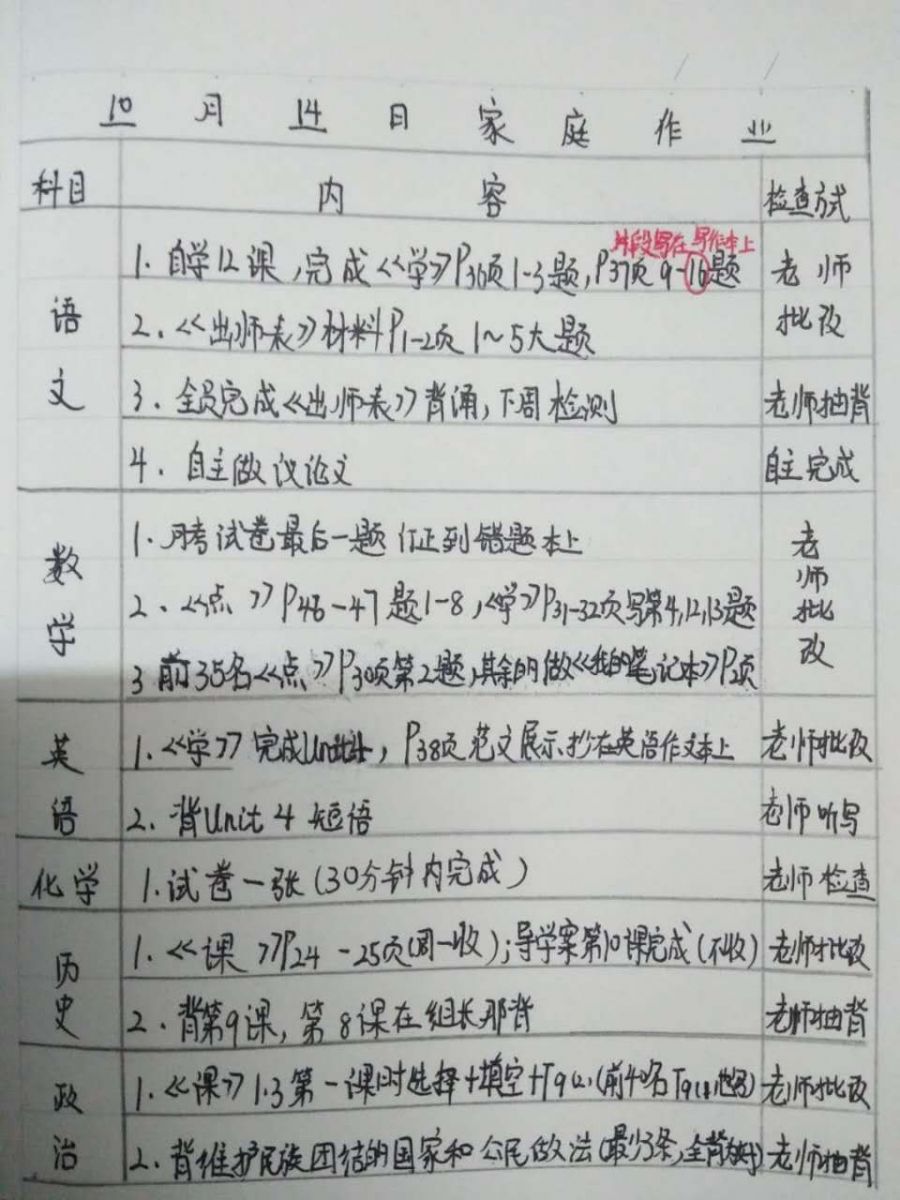 10月14日家庭作业
科目 内容 检查方式
语文
片段写在写作本上
1. 自学12课,完成《学》P36页1-3题,P37页9-16题 老师批改
2、《出师表》材料P1-2页1~5大题
3、全员完成《出师表》背诵,下周检测 老师抽背
4、自主做议论文 自主完成
数学
1、月考试卷最后一题订正到错题本上 老师批改
2、《点》P46-47题1-8,《学》P31-32页写第4,12,13题
3 前35名《点》P30页第2题,其余的做《我的笔记本》P页
英语
1、《学》完成Unit4,P38页范文展示、抄在英语作文本上 老师批改
2、背Unit 4 短语 老师听写
化学 1.试卷一张(30分钟内完成) 老师检查
历史
1、《课》P24-25页(周一收);导学案第10课完成(不收) 老师批改
2、背第9课,第8课在组长那背 老师抽背
政治
1、《课》1.3第一课时选择+填空+T9(2).(前40名T9 老师批改
2、背维护民族团结的国家和公民做法(最少3条,全背 老师抽背